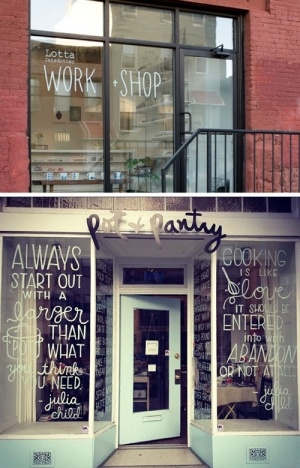 Lotta
Jansdotter
WORK + SHOP
Pot + Pantry
ALWAYS
START OUT
WITH A
larger
POT THAN
WHAT
you think
YOU NEED.
- julia
child
COOKING
IS LIKE
love
IT SHOULD BE
ENTERED
into with
ABANDON
OR NOT AT ALL
- julia
child